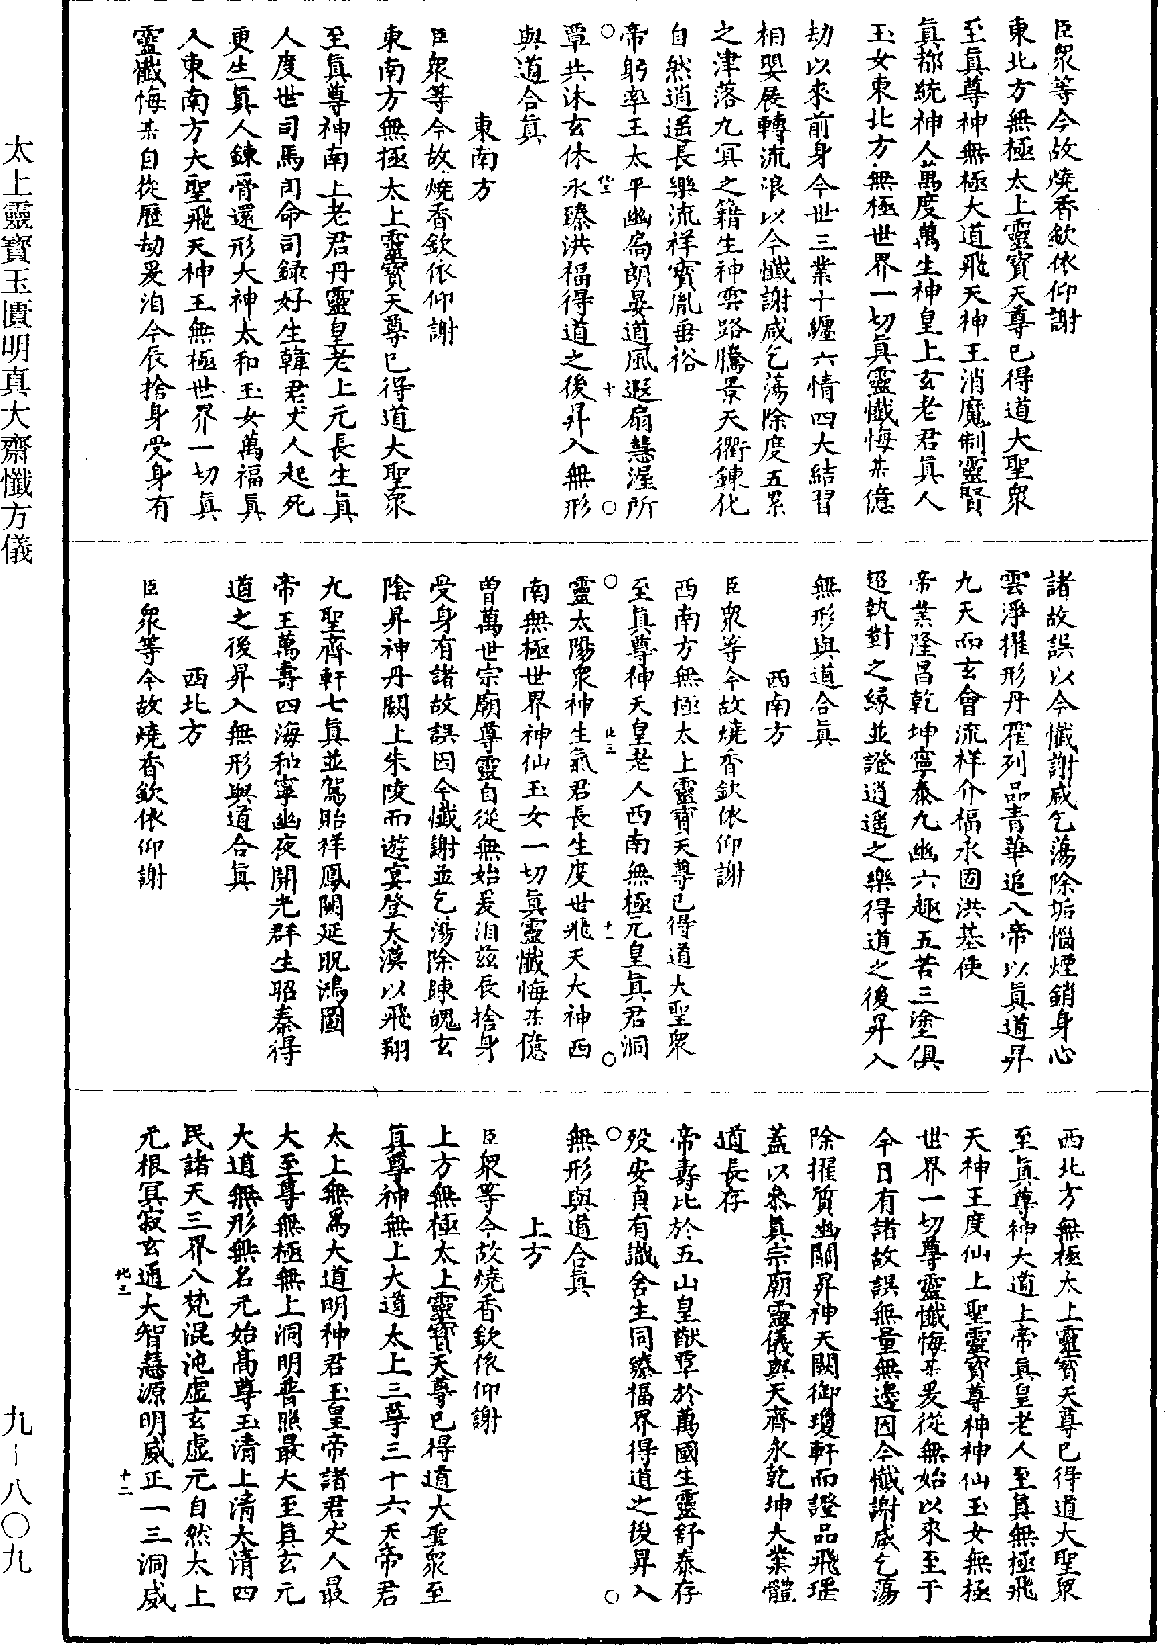 臣衆等今故燒香欽依仰謝
東北方無極太上靈寶天尊已得道大聖衆
至眞尊神無極大道飛天神王消魔制靈賢
眞都統神人萬度萬生神皇上玄老君眞人
玉女東北方無極世界一切眞靈懺悔某億
劫以來前身今世三業十纏六情四大結習
相嬰展轉流浪以今懺謝咸乞蕩除度五累
之津落九冥之籍生神雲路騰景天衢鍊化
自然逍遥長樂流祥寶胤垂裕
帝躬率王太平幽扃朗晏道風遐扇慧渥所
覃共沐玄休永臻洪福得道之後昇入無形
與道合眞
東南方
臣衆等今故燒香欽依仰謝
東南方無極太上靈寶天尊已得道大聖衆
至眞尊神南上老君丹靈皇老上元長生眞
人度世司馬司命司録好生韓君丈人起死
更生眞人鍊骨還形大神太和玉女萬福眞
人東南方大聖飛天神王無極世界一切眞
靈懺悔某自從歷劫爰洎今辰捨身受身有
諸故誤以今懺謝咸乞蕩除垢惱煙銷身心
雲淨擢形丹霍列品青華追八帝以眞道昇
九天而玄會流祥介福永固洪基使
帝業隆昌乾坤寧泰九幽六趣五苦三塗俱
超執對之緣並證逍遥之樂得道之後昇入
無形與道合眞
西南方
臣衆等今故燒香欽依仰謝
西南方無極太上靈寶天尊已得道大聖衆
至眞尊神天皇老人西南無極元皇眞君洞
靈太陽衆神生氣君長生度世飛天大神西
南無極世界神仙玉女一切眞靈懺悔某億
曾萬世宗廟尊靈自從無始爰洎兹辰捨身
受身有諸故誤因今懺謝並乞蕩除陳魄玄
陰昇神丹闕上朱陵而遊宴登太漠以飛翔
九聖齊軒七眞並駕貽祥鳳闕延貺鴻圖
帝王萬壽四海和寧幽夜開光群生昭泰得
道之後昇入無形與道合眞
西北方
臣衆等今故燒香欽依仰謝
西北方無極太上靈寶天尊已得道大聖衆
至眞尊神大道上帝眞皇老人至眞無極飛
天神王度仙上聖靈寶尊神神仙玉女無極
世界一切尊靈懺悔某爰從無始以來至于
今日有諸故誤無量無邊因今懺謝咸乞蕩
除擢質幽關昇神天闕御瓊軒而證品飛瑶
蓋以叅眞宗廟靈儀與天齊永乾坤大業體
道長存
帝壽比於五山皇猷覃於萬國生靈舒泰存
殁安貞有識含生同臻福界得道之後昇入
無形與道合眞
上方
臣衆等今故燒香欽依仰謝
上方無極太上靈寶天尊已得道大聖衆至
眞尊神無上大道太上三尊三十六天帝君
太上無爲大道明神君玉皇帝諸君丈人最
大至尊無極無上洞明普照最大至眞玄元
大道無形無名元始高尊玉清上清太清四
民諸天三界八梵混沌虚玄虚元自然太上
元根冥寂玄通大智慧源明威正一三洞威
太上靈寶玉匱明真大齋懺方儀
九－八〇九